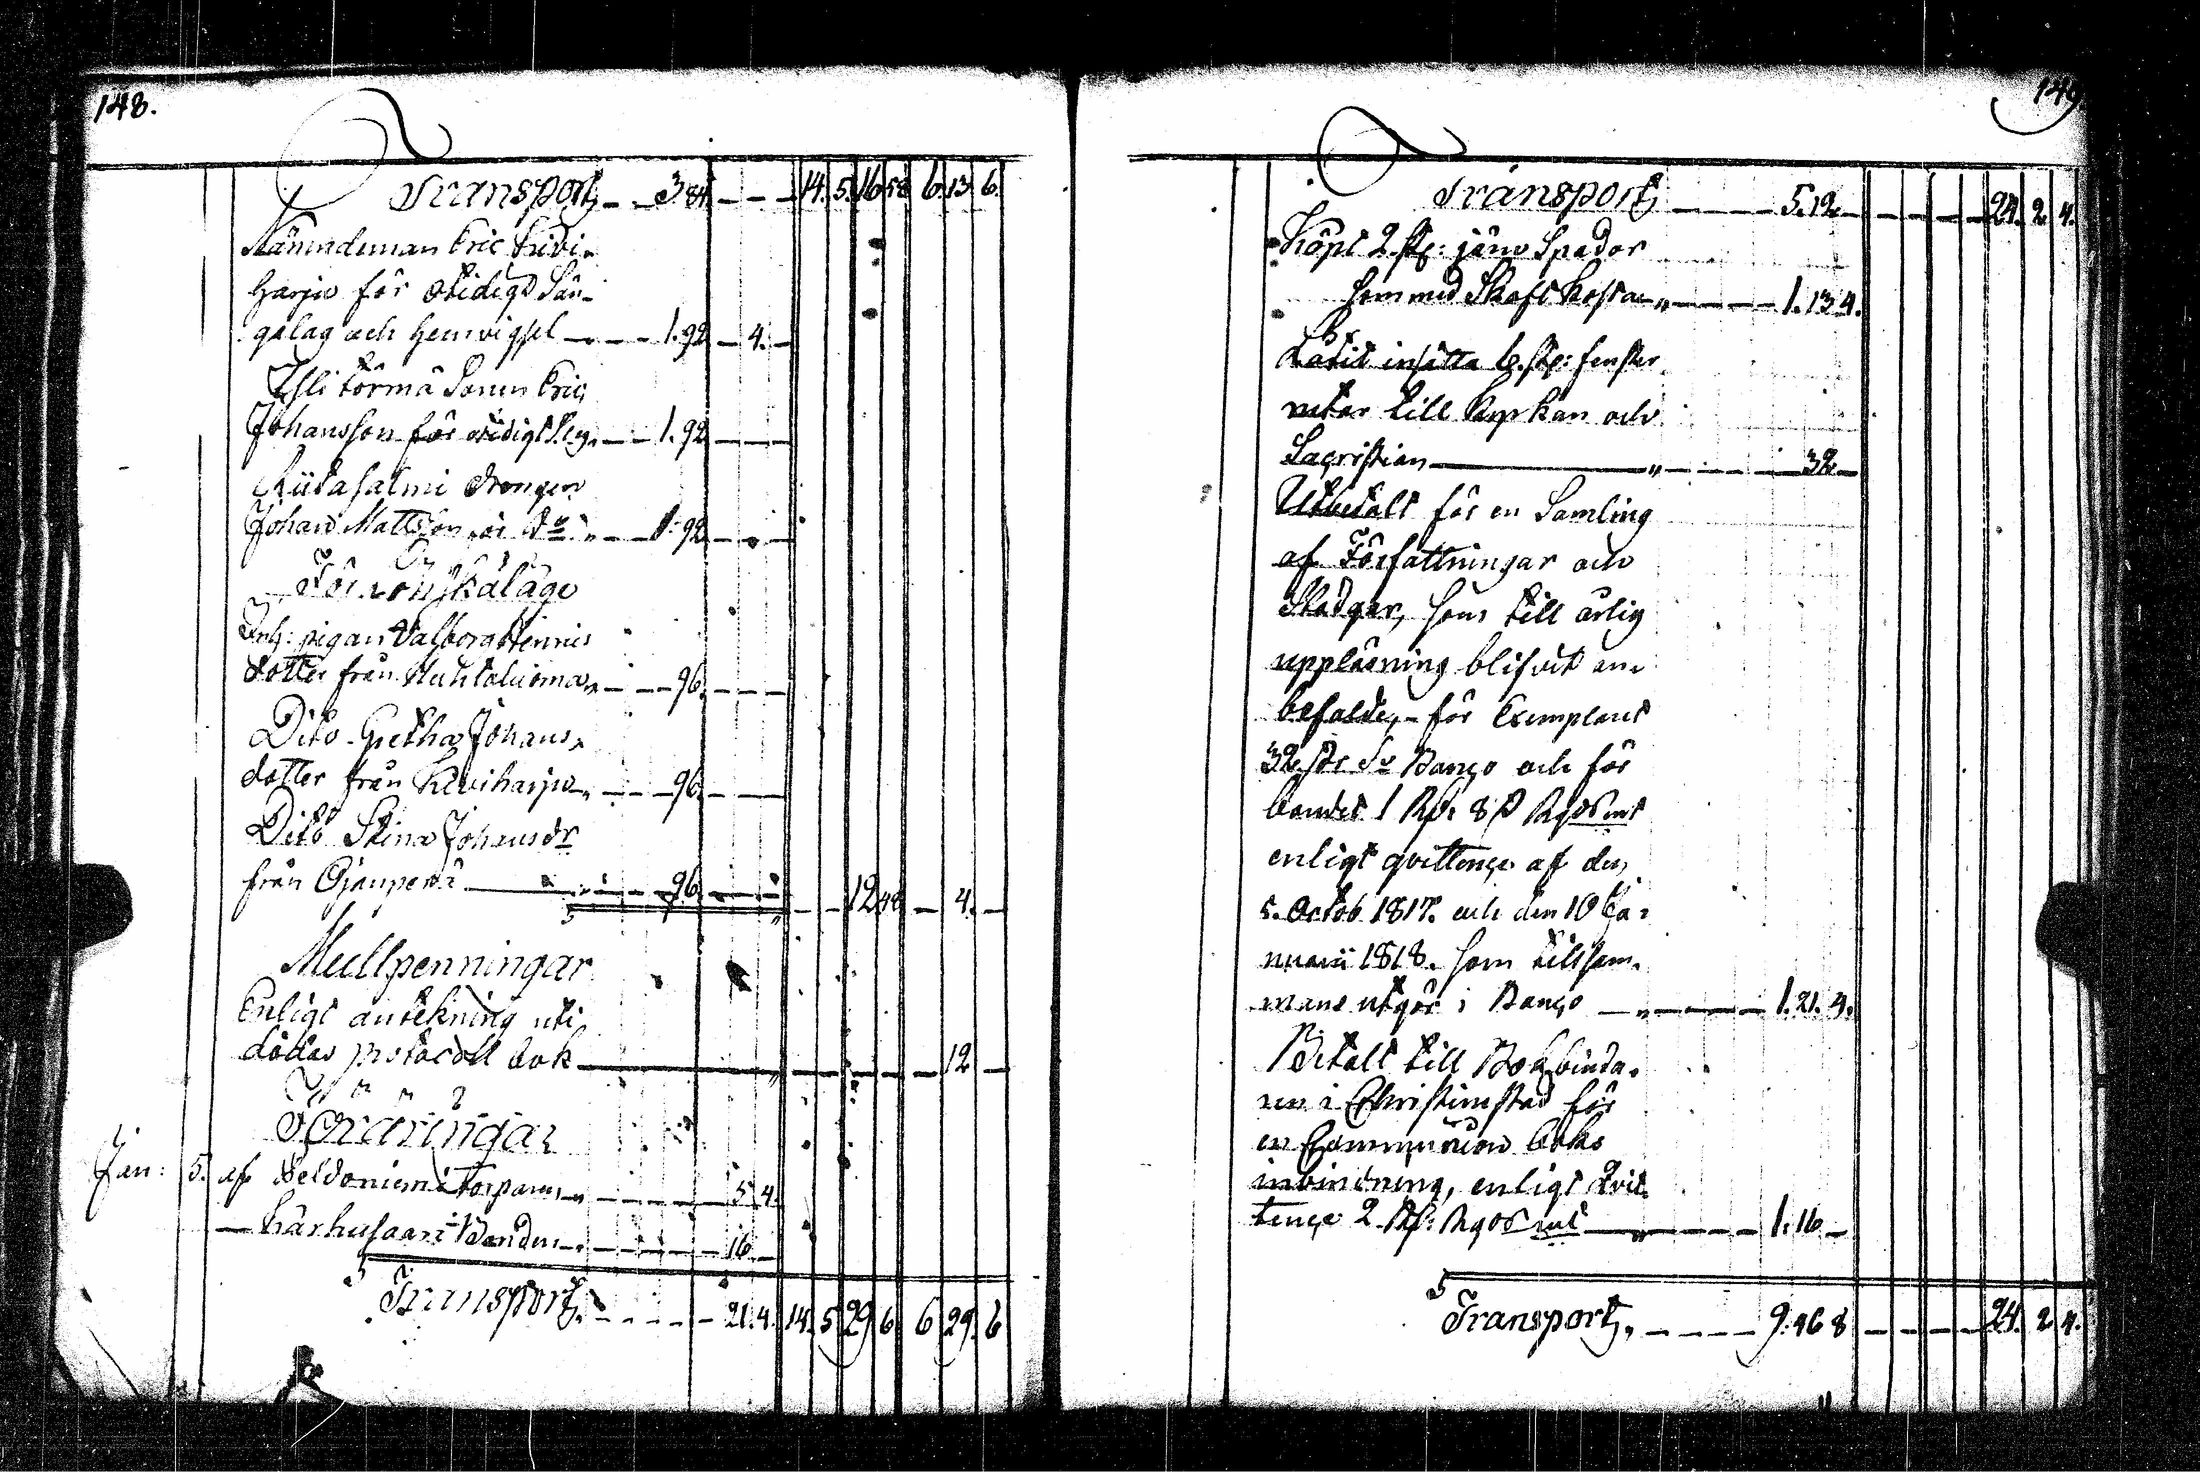 148.
Transport, - - 3 84 - - - 14. 5. 16 58 6. 13 6.
Nämndeman Eric Kivi-
harju för otidigt Sän-
galag och hemvigsel - - - 1. 92 - 4. -
Ylli Törmä Sonen Eric
Johansson för otidigt S.lag - - 1. 92 - - -
Riitasalmi drengen
Johan Mattsson för do - - 1. 92 - - -
För Lönskaläge
Inh: pigan Valborg Hennis
dotter från Huhtaluoma - - - 96. - - -
Dito Gretha Johans-
dotter från Kiviharju - - - 96. - -
Dito Stina Johansdr
från Ojanperä - - - 96. - - - 12 48 - 4. -
Mullpenningar
Enligt antekning uti
dödas protocoll bok - - - 12 -
Föräringar
Jan: 5. af Peldoniemi Torparen - - - 5. 4.
— Karhusaari Bonden - - - 16 -
Transport, - - - 21. 4. 14. 5 29 6 6 29. 6
149.
Transport, - - - 5. 12 - - - - 24. 2 4.
Köpt 2. st: järn Spador
som med Skaft kosta - - - 1. 13 4.
Låtit insätta 6. st: fenster
rutor till kyrkan och
Sacristian - - - 32 -
Utbetalt för en Samling
af Författningar och
Stadgar, som till årlig
uppläsning blifvit an-
befalde, - för Exemplaret
32 sk: Banco och för
bandet 1 Rd: 8 s Rgds mt
enligt qvittence af den
5. Octob 1817. och den 10 Ja-
nuarii 1818. som tillsam-
mans utgör i Banco - - - 1. 21. 4.
Betalt till Bokbinda-
ren i Christinestad för
en Communion boks
inbindning, enligt Qvit-
tence 2 Rd: Rgds mt - - - 1. 16 -
Transport, - - - 9. 46 8 - - - - 24. 2 4.